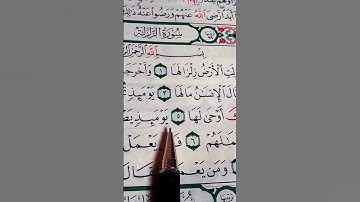 أَبَدًا رَضِيَ اللَّهُ عَنْهُمْ وَرَضُوا عَنْهُ ذَٰلِكَ
سُورَةُ الزَّلْزَلَةِ
بِسْمِ اللَّهِ الرَّحْمَٰنِ
الْأَرْضُ زِلْزَالَهَا ١ وَأَخْرَجَ
الْإِنسَٰنُ مَا لَهَا ٣ يَوْمَئِذٍ
أَوْحَىٰ لَهَا ٥ يَوْمَئِذٍ
٦ فَمَن يَعْمَلْ
وَمَن يَعْمَلْ